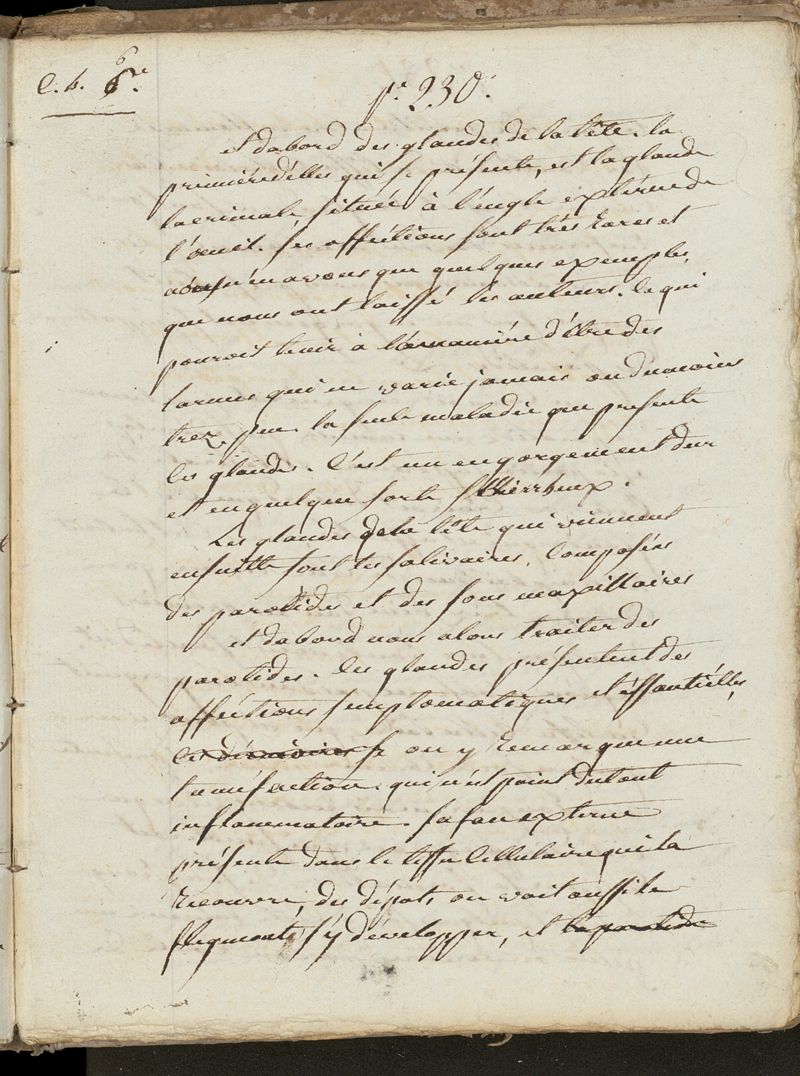 C. h. 6e.
6
pe 230.
et dabord des glandes de la tête. la
première d'élles qui se présente, est la glande
lacrimale, située à l'engle extèrne de
l'oeuil. ses afféctions sont très rares et
nous n'en avons que quelques exemples,
que nous ont laissé les auteurs. ce qui
pouroit tenir à la manière d'être des
larmes qui ne varie jamais ou du moins
trez peu. la seule maladie que presente
ces glandes. C'est un engorgement dur
et en quelque sorte skhirrheux.
Les glandes de la tête qui viennent
ensuitte sont les salivaires, Composées
des parotides et des sous maxillaires
et dabord nous alons traiter des
parotides. Ces glandes présentent des
afféctions simptomatiques et éssentiélles,
les on y remarque une
tuméfaction. qui n'est point du tout
inflammatoire. sa face externe
présente dans le tissu Cellulaire qui la
recouvre, des dépots, on voit aussi le
flegmont s'y développer, et la parotide